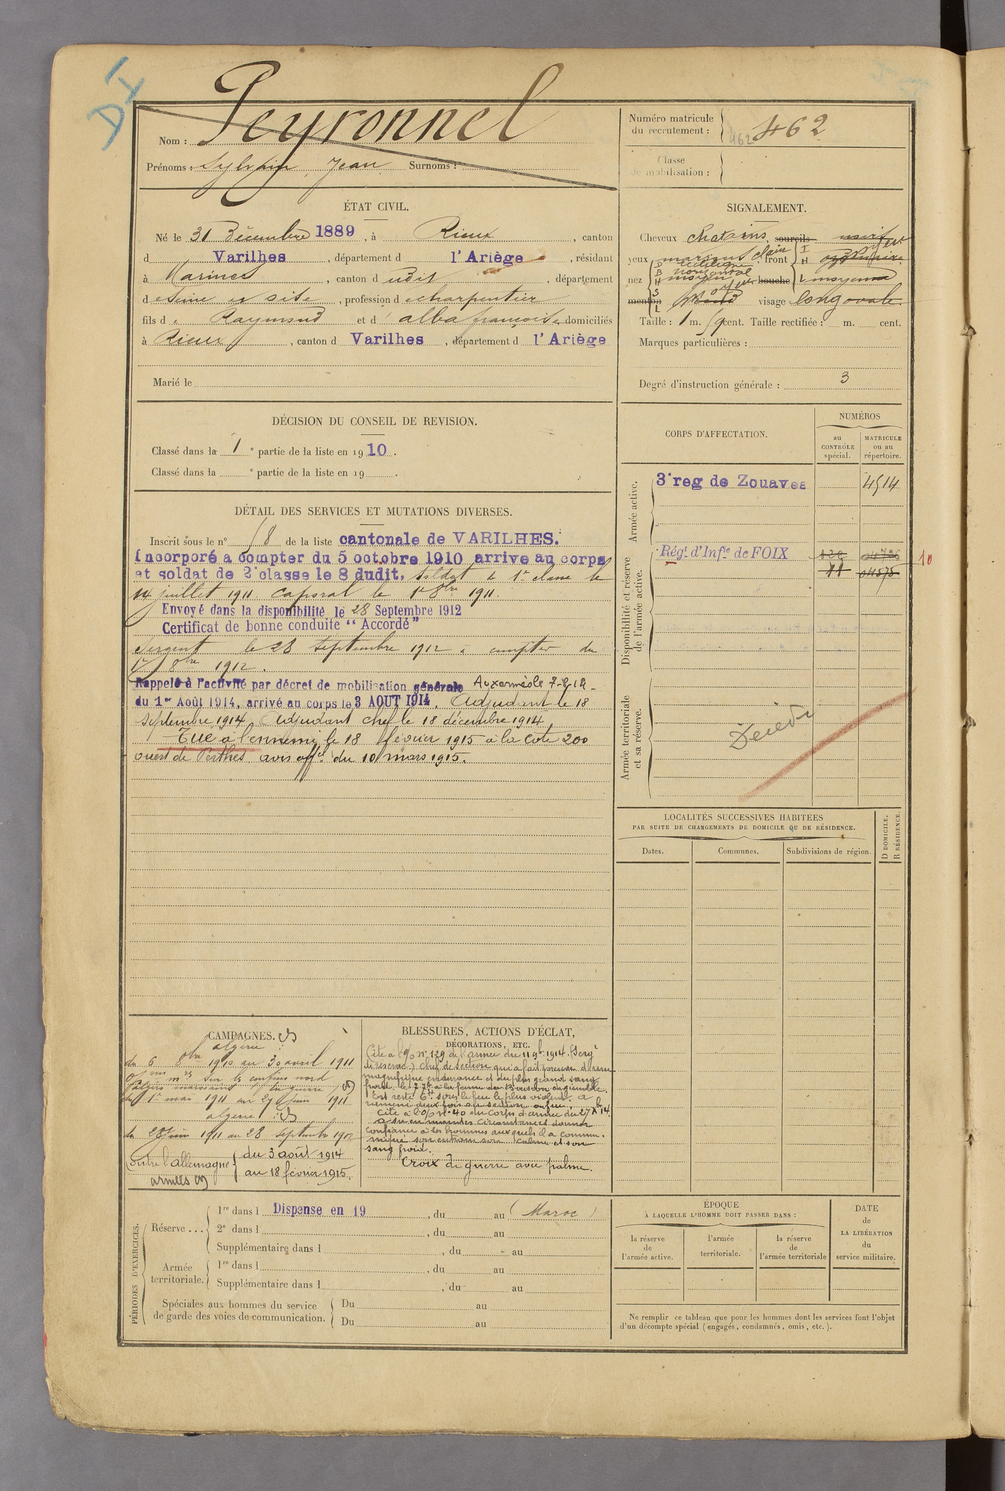 DI
Nom : Peyronnel
Prénoms : Sylvain Jean Surnoms :
Numéro matricule
du recrutement : 462 462
Classe
de mobilisation :
ÉTAT CIVIL.
Né le 31 Décembre 1889, à Rieux, canton
d Varilhes, département d l'Ariège, résidant
à Marines, canton d udit, département
d e Seine et Oise, profession d e charpentier
fils d e Raymond et d alba françoise domiciliés
à Rieux, canton d Varilhes, département d l'Ariège
Marié le
SIGNALEMENT.
Cheveux chatains sourcils
yeux marrons clair, front
nez moyen bouche moyenne
menton rond visage long ovale
Taille : 1 m. cent. Taille rectifiée : m. cent.
Marques particulières :
Degré d'instruction générale : 3
DÉCISION DU CONSEIL DE REVISION.
Classé dans la 1e partie de la liste en 1910.
Classé dans la e partie de la liste en 19 .
CORPS D'AFFECTATION.
NUMÉROS
au
CONTRÔLE
spécial.
MATRICULE
ou au
répertoire.
Armée active.
3e reg de Zouaves 4514
Disponibilité et réserve
de l'armée active.
Régt d'Infie de FOIX
11
10
Armée territoriale
et sa réserve.
Décédé
DÉTAIL DES SERVICES ET MUTATIONS DIVERSES.
Inscrit sous le n° 58 de la liste cantonale de VARILHES.
Incorporé a compter du 5 octobre 1910 arrive au corps
et soldat de 2e classe le 8 dudit, soldat de 1e classe le
14 juillet 1911 caporal le 1er 8bre 1911.
Envoyé dans la disponibilité le 28 Septembre 1912
Certificat de bonne conduite "Accordé"
Sergent le 28 septembre 1912 à compter du
1er 8bre 1912.
Rappelé à l'activité par décret de mobilisation générale Aux armées le 7-8-14-
du 1er Août 1914, arrivé au corps le 3 AOUT 1914. Adjudant le 18
septembre 1914. Adjudant chef le 18 décembre 1914
Tué à l'ennemi le 18 février 1915 à la cote 200
ouest de Perthes avis offel du 10 mars 1915.
LOCALITÉS SUCCESSIVES HABITÉES
PAR SUITE DE CHANGEMENTS DE DOMICILE OU DE RÉSIDENCE.
Dates.
Communes.
Subdivisions de région.
D DOMICILE.
R RÉSIDENCE.
CAMPAGNES.
algérie
du 6 8bre 1910 au 30 avril 1911
sur les confins nord
du 1er mai 1911 au 27 juin 1911
algérie
du 28 juin 1911 au 28 septembre 1912
Contre l'allemagne du 3 août 1914
armées au 18 février 1915.
BLESSURES, ACTIONS D'ÉCLAT,
DÉCORATIONS, ETC.
Cité à l'o/o n° 129 de l'armée du 11 9bre 1914. (Sergt
de réserve) Chef de section qui a fait preuve d'une
magnifique endurance et du plus grand sang
froid
Est resté sous le feu le plus violent, a
ramené deux fois sa section au feu.
Cité à l'o/o n° 40 du corps d'armée du
a su en maintes circonstances donner
confiance à ses hommes auxquels il a commu-
niqué son entrain son calme et son
sang froid.
Croix de guerre avec palme.
PÉRIODES D'EXERCICES.
Réserve...
1re dans l Dispense en 19, du au (Maroc)
2e dans l , du au
Supplémentaire dans l , du au
Armée
territoriale.
1re dans l , du au
Supplémentaire dans l , du au
Spéciales aux hommes du service
de garde des voies de communication.
Du au
Du au
ÉPOQUE
À LAQUELLE L'HOMME DOIT PASSER DANS :
la réserve
de
l'armée active.
l'armée
territoriale.
la réserve
de
l'armée territoriale
DATE
de
LA LIBÉRATION
du
service militaire.
Ne remplir ce tableau que pour les hommes dont les services font l'objet
d'un décompte spécial (engagés, condamnés, omis, etc.).